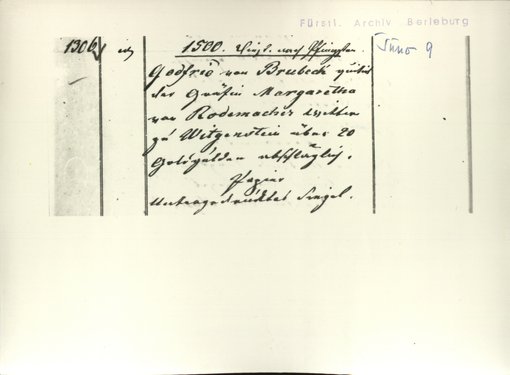 Fürstl. Archiv Berleburg
1306
1500. Dinst. nach Pfingsten. Juno 9
Godfrid von Brubeck quitirt
der Gräfin Margaretha
von Rodemacher Wittwe
zu Witgenstein über 20
Goldgulden abschläglich.
Papier
Untergedrucktes Siegel.